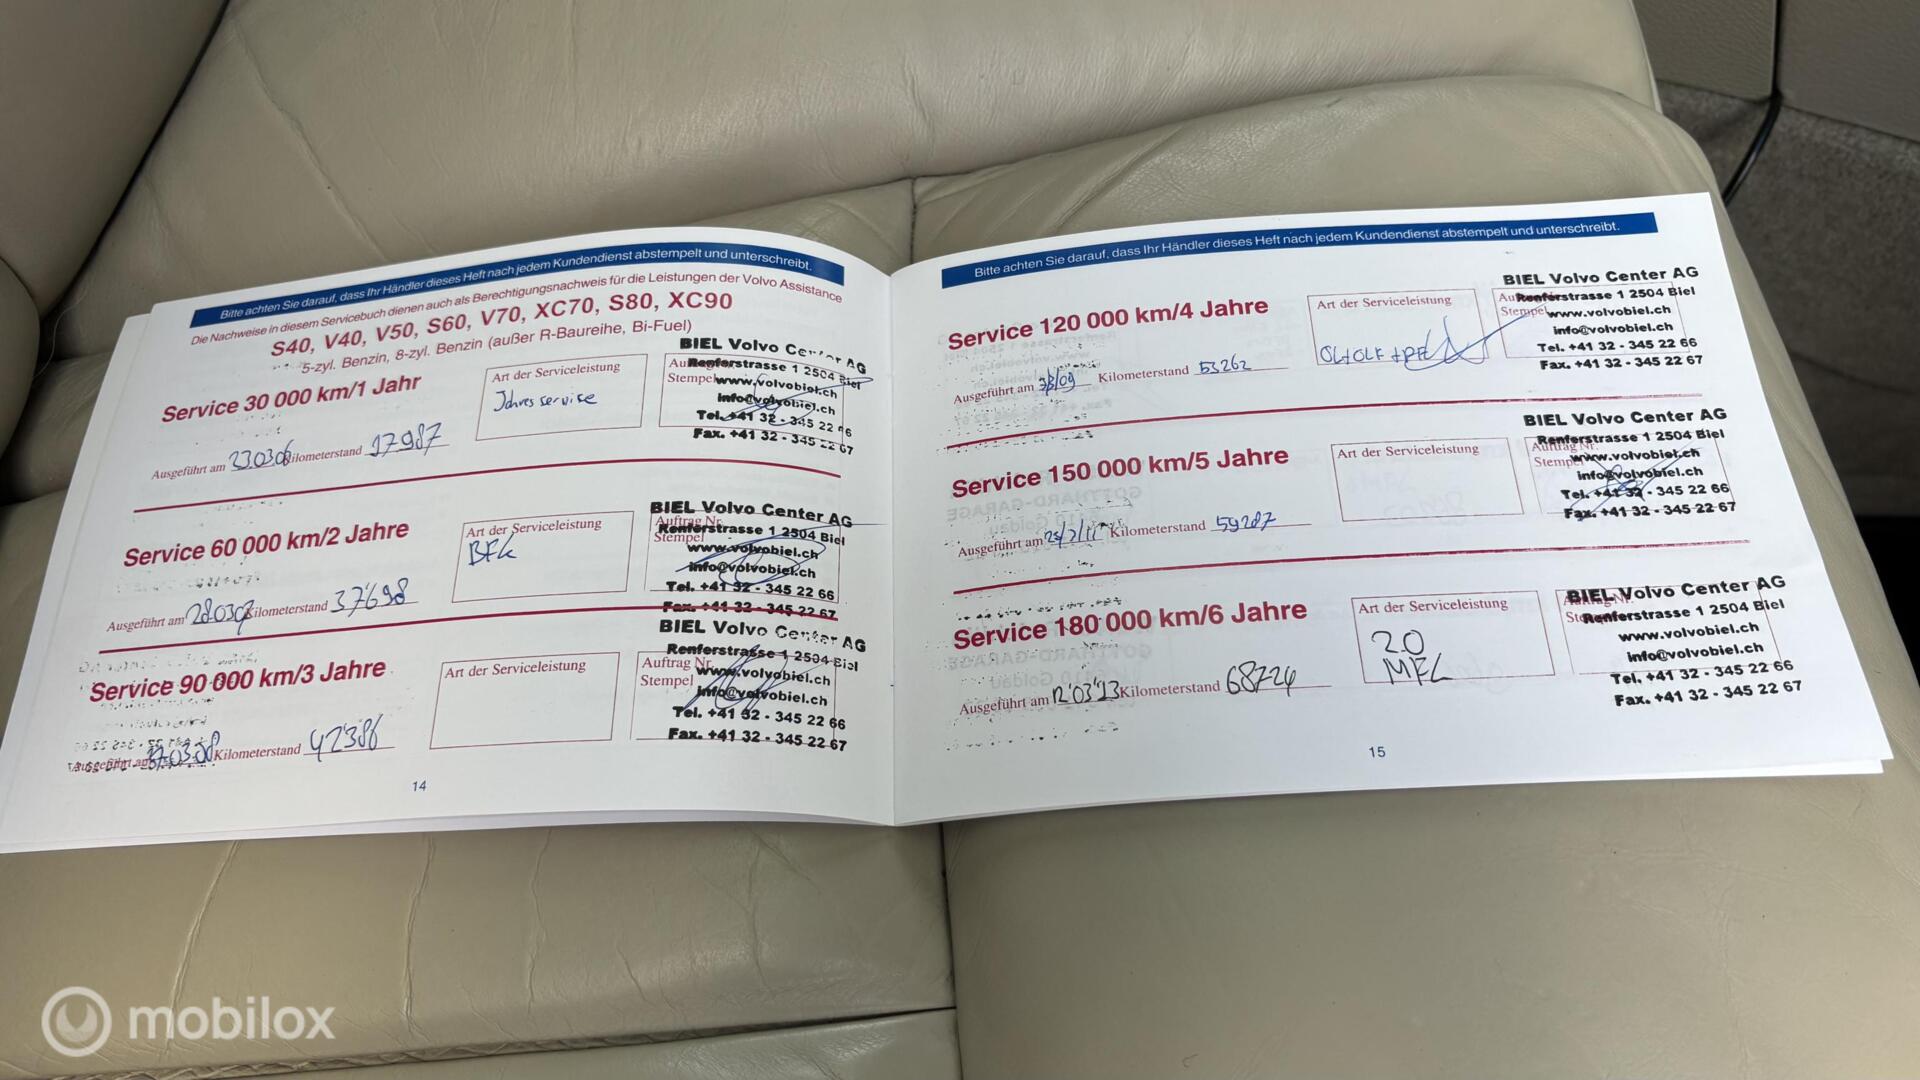 Bitte achten Sie darauf, dass Ihr Händler dieses Heft nach jedem Kundendienst abstempelt und unterschreibt.
Die Nachweise in diesem Servicebuch dienen auch als Berechtigungsnachweis für die Leistungen der Volvo Assistance
S40, V40, V50, S60, V70, XC70, S80, XC90
5-zyl. Benzin, 8-zyl. Benzin (außer R-Baureihe, Bi-Fuel)
Service 30 000 km/1 Jahr
Art der Serviceleistung
Jahresservice
Stempel
BIEL Volvo Center AG
Renferstrasse 1 2504 Biel
www.volvobiel.ch
info@volvobiel.ch
Tel. +41 32 - 345 22 66
Fax. +41 32 - 345 22 67
Ausgeführt am 230306 Kilometerstand 17987
Service 60 000 km/2 Jahre
Art der Serviceleistung
Auftrag Nr.
Stempel
BIEL Volvo Center AG
Renferstrasse 1 2504 Biel
www.volvobiel.ch
info@volvobiel.ch
Tel. +41 32 - 345 22 66
Fax. +41 32 - 345 22 67
Ausgeführt am 280307 Kilometerstand 37698
Service 90 000 km/3 Jahre
Art der Serviceleistung
Auftrag Nr.
Stempel
BIEL Volvo Center AG
Renferstrasse 1 2504 Biel
www.volvobiel.ch
info@volvobiel.ch
Tel. +41 32 - 345 22 66
Fax. +41 32 - 345 22 67
Ausgeführt am Kilometerstand 42386
14
Bitte achten Sie darauf, dass Ihr Händler dieses Heft nach jedem Kundendienst abstempelt und unterschreibt.
Service 120 000 km/4 Jahre
Art der Serviceleistung
Stempel
BIEL Volvo Center AG
Renferstrasse 1 2504 Biel
www.volvobiel.ch
info@volvobiel.ch
Tel. +41 32 - 345 22 66
Fax. +41 32 - 345 22 67
Ausgeführt am Kilometerstand 53262
Service 150 000 km/5 Jahre
Art der Serviceleistung
Auftrag Nr.
Stempel
BIEL Volvo Center AG
Renferstrasse 1 2504 Biel
www.volvobiel.ch
info@volvobiel.ch
Tel. +41 32 - 345 22 66
Fax. +41 32 - 345 22 67
Ausgeführt am Kilometerstand 59287
Service 180 000 km/6 Jahre
Art der Serviceleistung
20
BIEL Volvo Center AG
Renferstrasse 1 2504 Biel
www.volvobiel.ch
info@volvobiel.ch
Tel. +41 32 - 345 22 66
Fax. +41 32 - 345 22 67
Ausgeführt am 12'03'13 Kilometerstand 68724
15
mobilox